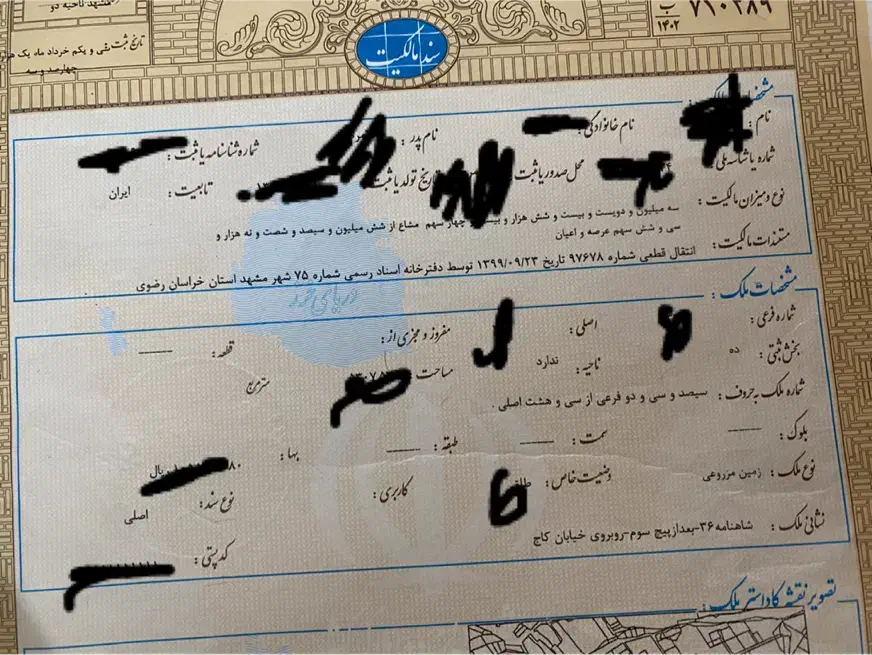 مشهد ناحیه دو
تاریخ ثبت: سی و یکم خرداد ماه یک هزار
چهارصد و سه
سند مالکیت
ب
۱۴۰۲
۷۱۰۳۸۹
مشخصات
نام : نام خانوادگی : نام پدر : شماره شناسنامه یا ثبت :
شماره یا شناسه ملی محل صدور یا ثبت تاریخ تولد یا ثبت تابعیت : ایران
نوع و میزان مالکیت : سه میلیون و دویست و بیست و شش هزار و بیست و چهار سهم مشاع از شش میلیون و سیصد و شصت و نه هزار و
سی و شش سهم عرصه و اعیان
مستندات مالکیت : انتقال قطعی شماره ۹۷۶۷۸ تاریخ ۱۳۹۹/۰۹/۲۳ توسط دفترخانه اسناد رسمی شماره ۷۵ شهر مشهد استان خراسان رضوی
دریای خزر
مشخصات ملک :
شماره فرعی : اصلی : مفروز و مجزی از : قطعه :
بخش ثبتی : ده ناحیه : ندارد مساحت : مترمربع
شماره ملک به حروف : سیصد و سی و دو فرعی از سی و هشت اصلی .
بلوک : سمت : طبقه : بها : ۸۰ ریال
نوع ملک : زمین مزروعی وضعیت خاص : کاربری : نوع سند : اصلی
نشانی ملک : شاهنامه ۳۶-بعداز پیچ سوم-روبروی خیابان کاج کد پستی :
تصویر نقشه کاداستر ملک :